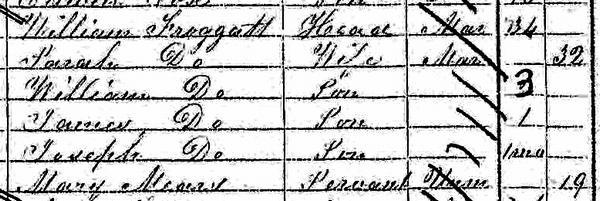 William Froggatt Head Mar 34
Sarah Do Wife Mar 32
William Do Son 3
James Do Son 1
Joseph Do Son 1 mo
Mary Mears Servant Unm 19